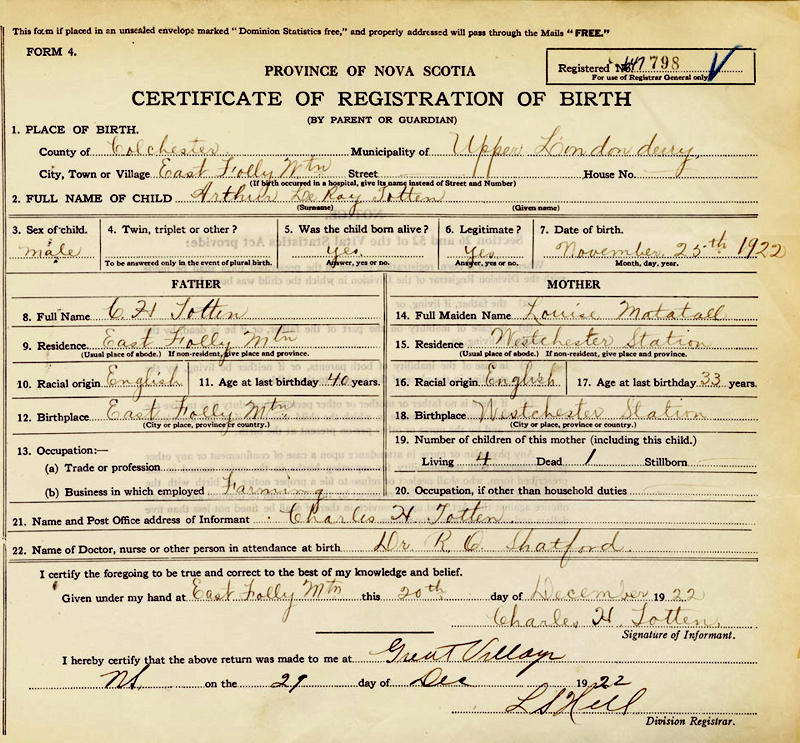 This form if placed in an unsealed envelope marked "Dominion Statistics free," and properly addressed will pass through the Mails "FREE."
FORM 4.
Registered No. 798
For use of Registrar General only
PROVINCE OF NOVA SCOTIA
CERTIFICATE OF REGISTRATION OF BIRTH
(BY PARENT OR GUARDIAN)
1. PLACE OF BIRTH.
County of Colchester Municipality of Upper Londonderry
City, Town or Village East Folly Mtn Street House No.
(If birth occurred in a hospital, give its name instead of Street and Number)
2. FULL NAME OF CHILD Arthur LeRoy Totten
(Surname) (Given name)
3. Sex of child. 4. Twin, triplet or other? 5. Was the child born alive? 6. Legitimate? 7. Date of birth.
male yes yes November 25th 1922
To be answered only in the event of plural birth. Answer, yes or no. Answer, yes or no. Month, day, year.
FATHER MOTHER
8. Full Name C. H Totten 14. Full Maiden Name Louise Matatall
9. Residence East Folly Mtn 15. Residence Westchester Station
(Usual place of abode.) If non-resident, give place and province. (Usual place of abode.) If non-resident, give place and province.
10. Racial origin English 11. Age at last birthday 40 years. 16. Racial origin English 17. Age at last birthday 33 years.
12. Birthplace East Folly Mtn 18. Birthplace Westchester Station
(City or place, province or country.) (City or place, province or country.)
13. Occupation:— 19. Number of children of this mother (including this child.)
(a) Trade or profession Living 4 Dead 1 Stillborn
(b) Business in which employed Farming 20. Occupation, if other than household duties
21. Name and Post Office address of Informant Charles H. Totten.
22. Name of Doctor, nurse or other person in attendance at birth Dr. R. O. Shatford.
I certify the foregoing to be true and correct to the best of my knowledge and belief.
Given under my hand at East Folly Mtn this 20th day of December 1922
Charles H. Totten.
Signature of Informant.
I hereby certify that the above return was made to me at Great Village
NS. on the 29 day of Dec 1922
L S Hill
Division Registrar.